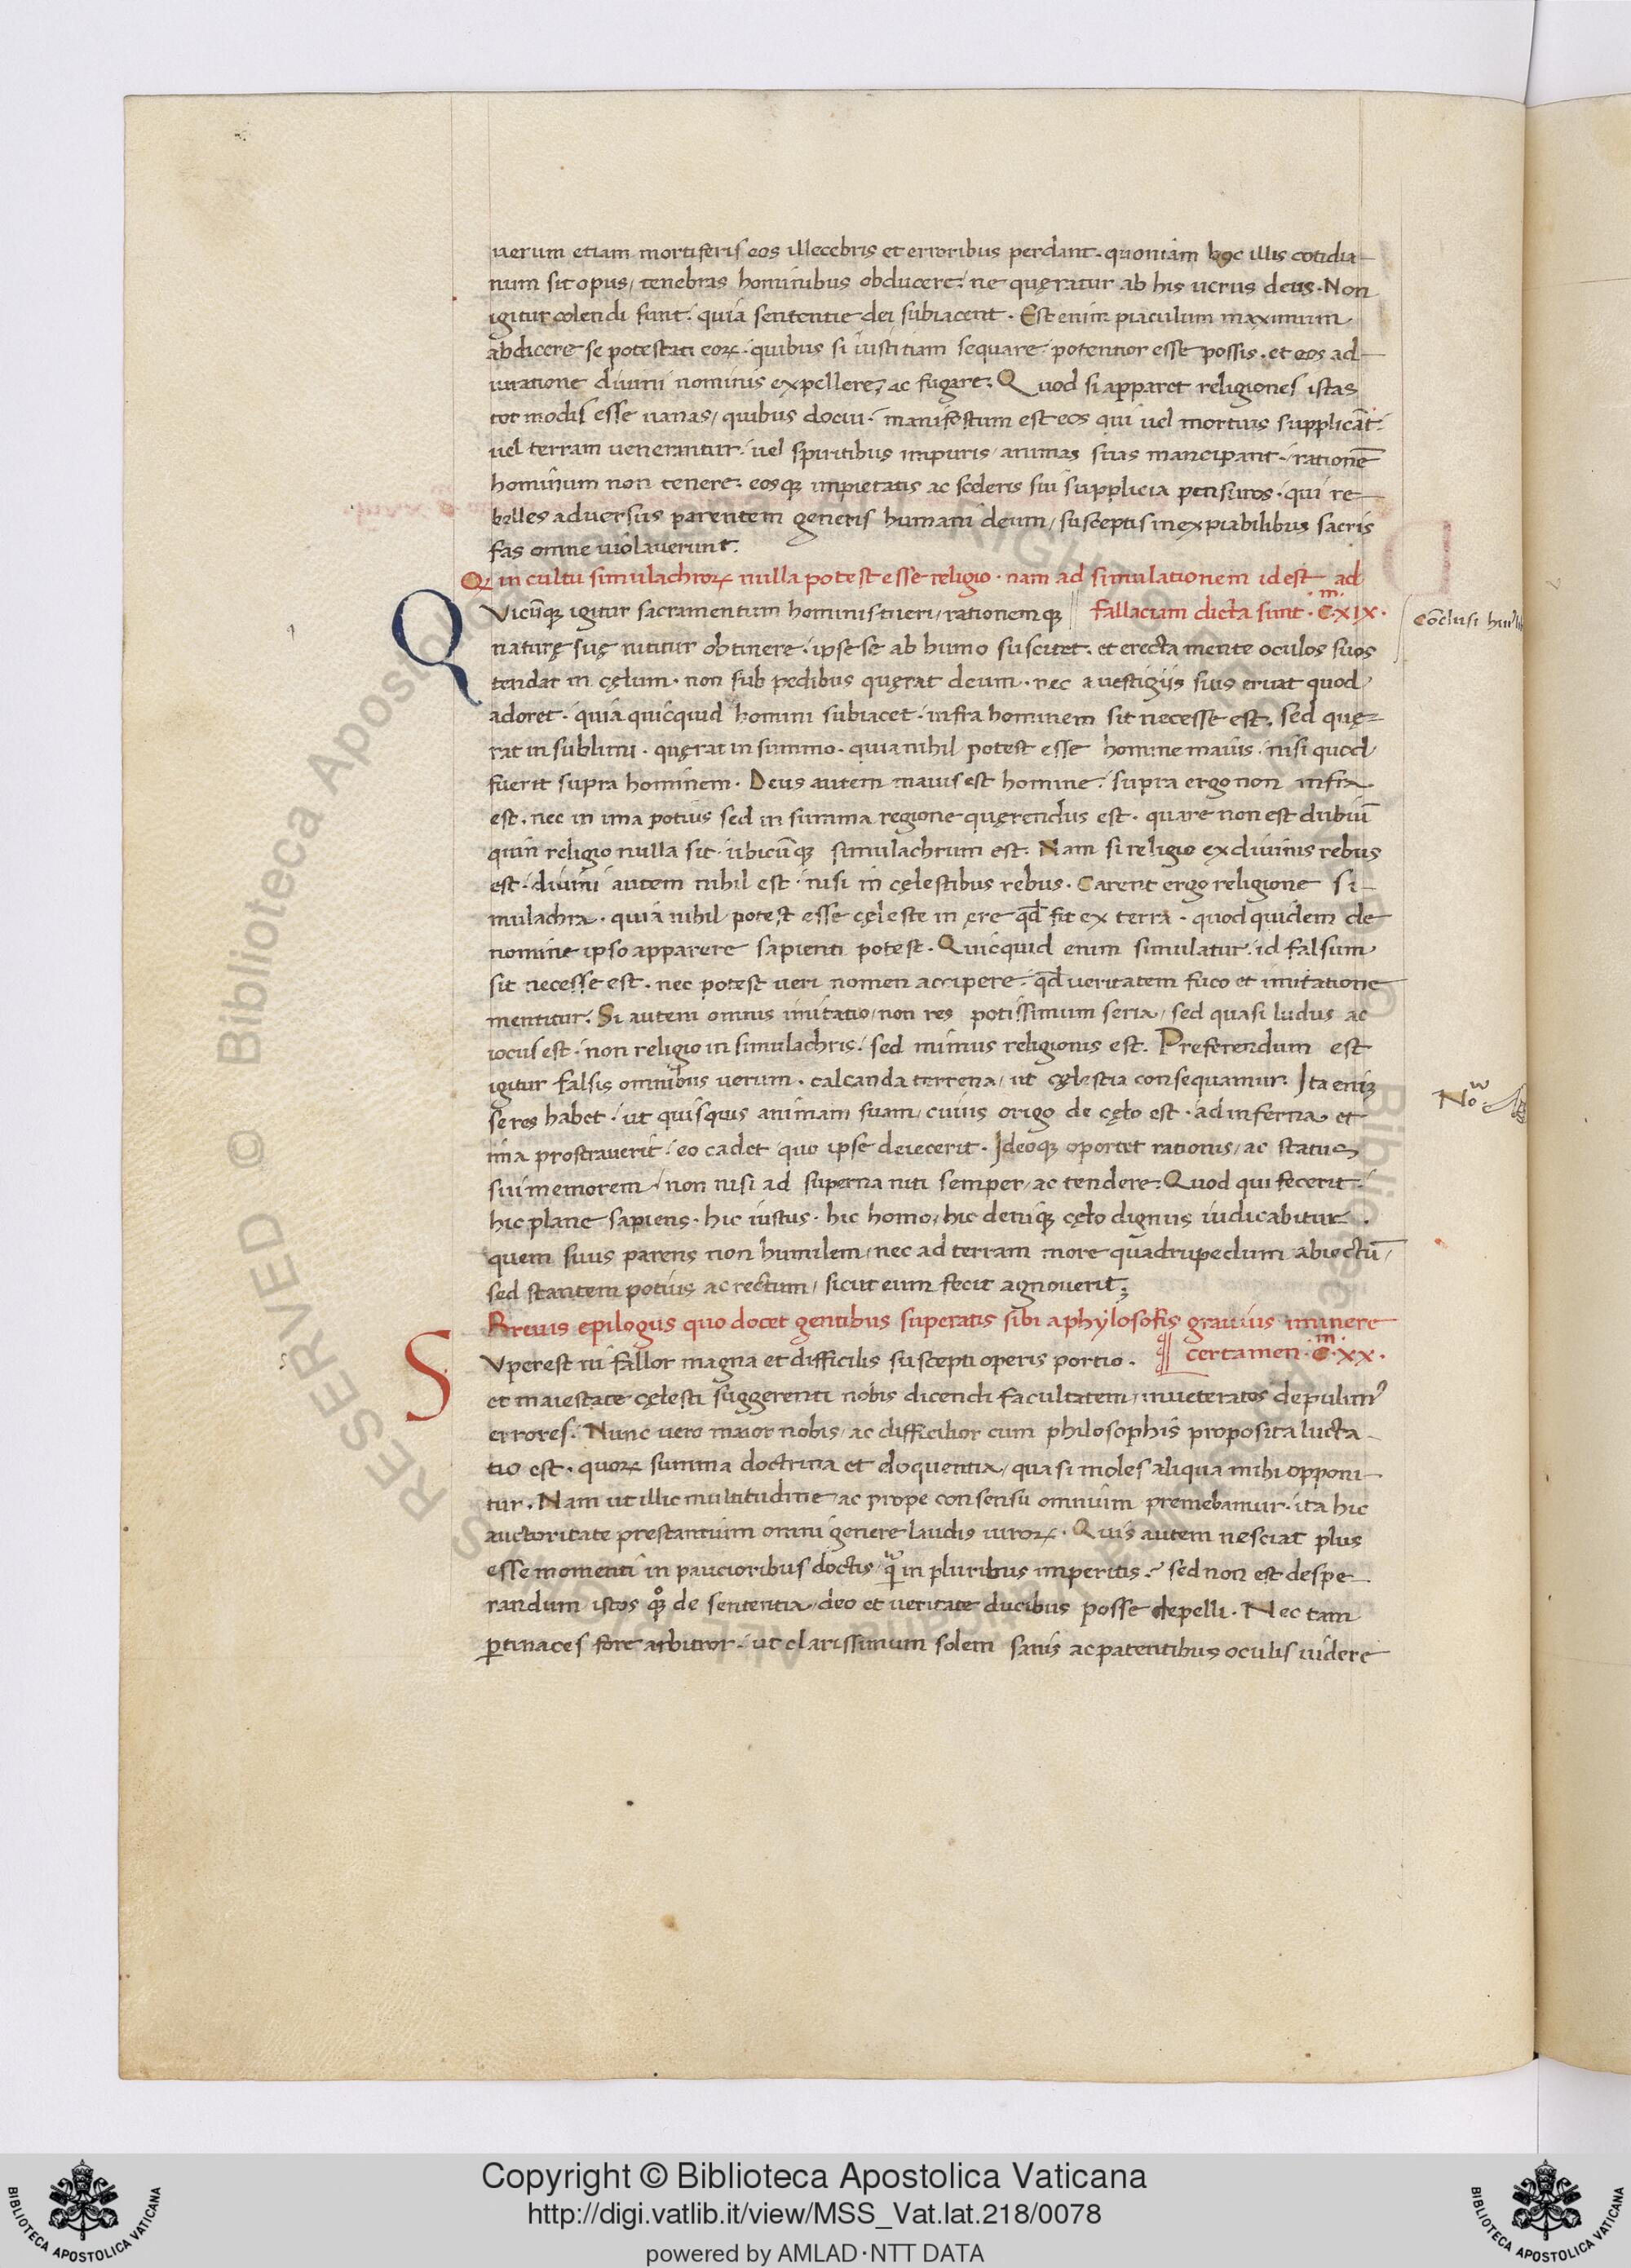 uerum etiam mortiferis eos illecebris et erroribus perdant. quoniam hoc illis cotidia-
num sit opus, tenebras hominibus obducere. ne quęratur ab his uerus deus. Non
igitur colendi sunt. quia sententie dei subiacent. Est enim piaculum maximum
abdicere se potestati eoꝝ. quibus si iustitiam sequare. potentior esse possis. et eos ad-
iuratione diuini nominis expellere, ac fugare. Quod si apparet religiones istas
tot modis esse uanas, quibus docui. manifestum est eos qui uel mortuis supplicāt.
uel terram uenerantur. uel spiritibus impuris, animas suas mancipant. rationē
hominum non tenere. eosqꝫ impietatis ac sceleris sui supplicia pensuros. qui re-
belles aduersus parentem generis humani deum, susceptis inexpiabilibus sacris
fas omne uiolauerunt.
Q in cultu simulachroꝝ nulla potest esse religio. nam ad simulationem id est ad
Vicūqꝫ igitur sacramentum hominis tueri, rationemqꝫ fallaciam dicta sunt. C.m XIX.
Q
naturę suę nititur obtinere. ipse se ab humo suscitet. et erecta mente oculos suos
tendat in cęlum. non sub pedibus quęrat deum. nec a uestigijs suis eruat quod
adoret. quia quicquid homini subiacet. infra hominem sit necesse est. sed quę-
rat in sublimi. quęrat in summo. quia nihil potest esse homine maius. nisi quod
fuerit supra hominem. Deus autem maius est homine. supra ergo non infra
est. nec in ima potius sed in summa regione quęrendus est. quare non est dubiū
quin religio nulla sit. ubicūqꝫ simulachrum est. Nam si religio ex diuinis rebus
est. diuini autem nihil est. nisi in cęlestibus rebus. Carent ergo religione si-
mulachra. quia nihil potest esse cęleste in ęre qđ fit ex terra. quod quidem de
nomine ipso apparere sapienti potest. Quicquid enim simulatur. id falsum
sit necesse est. nec potest ueri nomen accipere. qđ ueritatem fuco et imitatione
mentitur. Si autem omnis imitatio, non res potissimum seria, sed quasi ludus ac
iocus est. non religio in simulachris. sed mimus religionis est. Preferendum est
igitur falsis omnibus uerum. calcanda terrena, ut cęlestia consequamur. Ita eniꝫ
se res habet. ut quisquis animam suam, cuius origo de cęlo est. ad inferna et
ima prostrauerit. eo cadet quo ipse deiecerit. Ideoqꝫ oportet rationis, ac status
sui memorem, non nisi ad superna niti semper, ac tendere. Quod qui fecerit.
hic plane sapiens. hic iustus. hic homo, hic deniqꝫ cęlo dignus iudicabitur.
quem suus parens non humilem, nec ad terram more quadrupedum abiectū,
sed stantem potius ac rectum, sicut eum fecit agnouerit;
Breuis epilogus quo docet gentibus superatis sibi a phylosofis grauius iminere
S
Vperest ni fallor magna et difficilis suscepti operis portio. certamen. C.m XX.
et maiestate cęlesti suggerenti nobis dicendi facultatem, inueteratos depulimꝰ
errores. Nunc uero maior nobis, ac difficilior cum philosophis proposita lucta-
tio est. quoꝝ summa doctrina et eloquentia, quasi moles aliqua mihi opponi-
tur. Nam ut illic multitudine ac prope consensu omnium premebamur. ita hic
auctoritate prestantium omni genere laudis uiroꝝ. Quis autem nesciat plus
esse momenti in paucioribus doctis, q̃ in pluribus imperitis? sed non est despe-
randum istos qꝫ̊ de sententia, deo et ueritate ducibus posse depelli. Nec tam
ꝑtinaces fore arbitror. ut clarissimum solem sanis ac patentibus oculis uidere
Copyright © Biblioteca Apostolica Vaticana
http://digi.vatlib.it/view/MSS_Vat.lat.218/0078
powered by AMLAD·NTT DATA
BIBLIOTECA APOSTOLICA VATICANA
BIBLIOTECA APOSTOLICA VATICANA